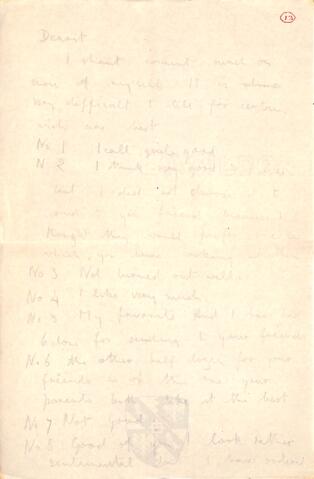 13
Dearest
I shant comment much on
of myself. It is
very difficult to tell for certain
which was best
No 1 I call quite good
N 2 I think very good
but I did not choose it to
send to your friends because I
thought they would prefer
No 3 Not turned out well.
No 4 I like very much.
No 5 My favourite And I
6 done for sending to your friends
No 6 the other half dozen for your
friends is of this one your
parents both like it the best
No 7 Not good
No 8 Good I look rather
sentimental I have ordered